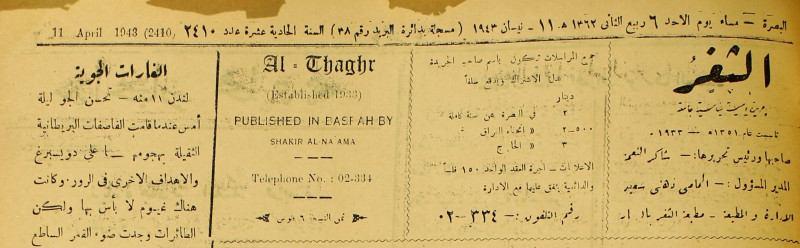 البصرة — مساء يوم الاحد ٦ ربيع الثاني ١٣٦٢ هـ ١١ - نيسان ١٩٤٣ (مسجلة بدائرة البريد رقم ٣٨) السنة الحادية عشرة عدد ٢٤١٠ 11 April 1943 (2410)
الثغر
جريدة يومية سياسية عامة
تأسست عام ١٣٥١ هـ — ١٩٣٣
صاحبها ورئيس تحريرها :— شاكر النعمة
المدير المسؤول :— المحامي ذهني سعيد
الادارة و المطبعة - مطبعة الثغر
جميع المراسلات تكون باسم صاحب الجريدة
بدل الاشتراك ويدفع سلفاً
دينار
٢ في البصرة عن سنة كاملة
٢-٥٠٠ « انحاء العراق «
٣ « الخارج
الاعلانات — اجرة العقد الواحد ١٥٠ فلساً
والدائمية يتفق عليها مع الادارة
رقم التلفون :— ٣٣٤—٠٢
Al - Thaghr
(Established 1933)
PUBLISHED IN BASRAH BY
SHAKIR AL NA'AMA
Telephone No. : 02-334
ثمن النسخة ٦ فلوس
الغارات الجوية
لندن ١١ منه — تحسن الجو ليلة
أمس عندما قامت القاصفات البريطانية
الثقيلة بهجوم على دويسبرغ
والاهداف الاخرى في الرور. وكانت
هناك غيوم لا بأس بها ولكن
الطائرات وجدت ضوء القمر الساطع